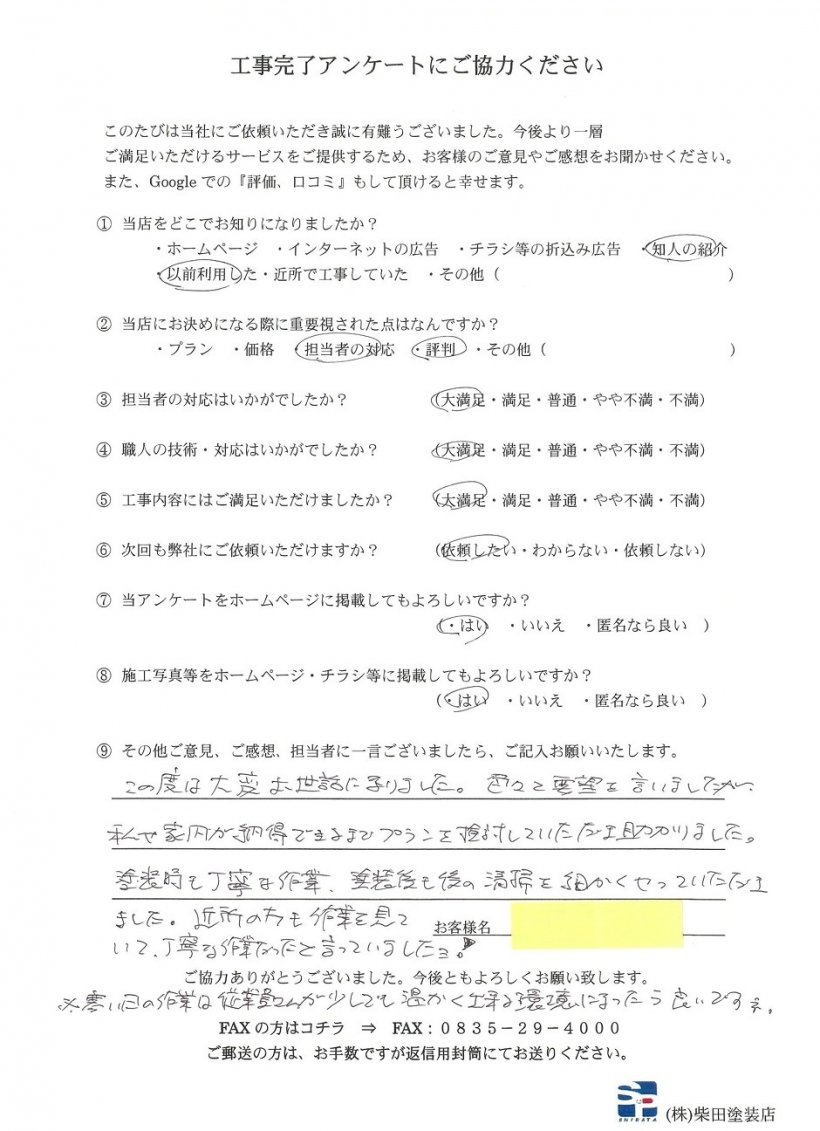 工事完了アンケートにご協力ください
このたびは当社にご依頼いただき誠に有難うございました。今後より一層
ご満足いただけるサービスをご提供するため、お客様のご意見やご感想をお聞かせください。
また、Googleでの『評価、口コミ』もして頂けると幸せます。
① 当店をどこでお知りになりましたか？
・ホームページ ・インターネットの広告 ・チラシ等の折込み広告 ・知人の紹介
・以前利用した・近所で工事していた ・その他（ ）
② 当店にお決めになる際に重要視された点はなんですか？
・プラン ・価格 ・担当者の対応 ・評判 ・その他（ ）
③ 担当者の対応はいかがでしたか？ （大満足・満足・普通・やや不満・不満）
④ 職人の技術・対応はいかがでしたか？ （大満足・満足・普通・やや不満・不満）
⑤ 工事内容にはご満足いただけましたか？ （大満足・満足・普通・やや不満・不満）
⑥ 次回も弊社にご依頼いただけますか？ （依頼したい・わからない・依頼しない）
⑦ 当アンケートをホームページに掲載してもよろしいですか？
（・はい ・いいえ ・匿名なら良い ）
⑧ 施工写真等をホームページ・チラシ等に掲載してもよろしいですか？
（・はい ・いいえ ・匿名なら良い ）
⑨ その他ご意見、ご感想、担当者に一言ございましたら、ご記入お願いいたします。
この度は大変お世話になりました。色々と要望を言いましたが、
私や家内が納得できるまでプランを検討していただき助かりました。
塗装時も丁寧な作業、塗装後も後の清掃を細かくやっていただき
ました。近所の方も作業を見て お客様名
いて、丁寧な作業だったと言っていましたョ。
ご協力ありがとうございました。今後ともよろしくお願い致します。
※寒い日の作業は従業員さんが少しでも温かく出来る環境になったら良いですネ。
FAXの方はコチラ ⇒ FAX：0835－29－4000
ご郵送の方は、お手数ですが返信用封筒にてお送りください。
SHIBATA (株)柴田塗装店